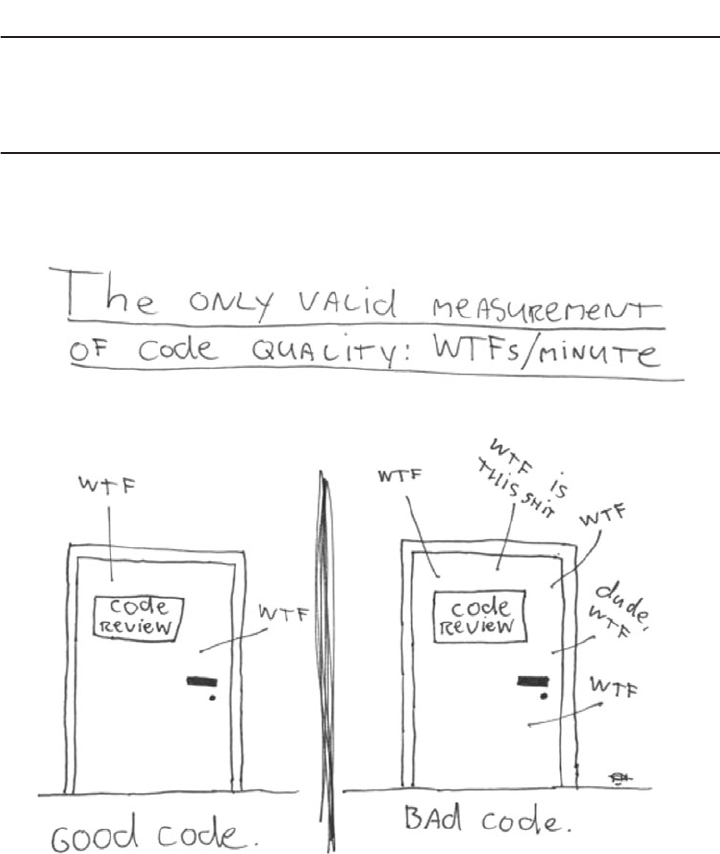 The ONLY VALid MEASUREMENT
OF Code QUALITY: WTFs/MINUTE
WTF
Code
REVIEW
WTF
Good code.
WTF
WTF is
THIS SHIT
WTF
dude,
WTF
Code
REVIEW
WTF
BAd code.